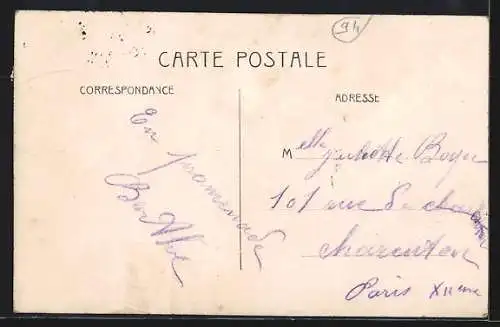 94
CARTE POSTALE
CORRESPONDANCE
ADRESSE
En promenade
Melle Juliette Boyer
101 rue de
Charenton
Paris XIIeme